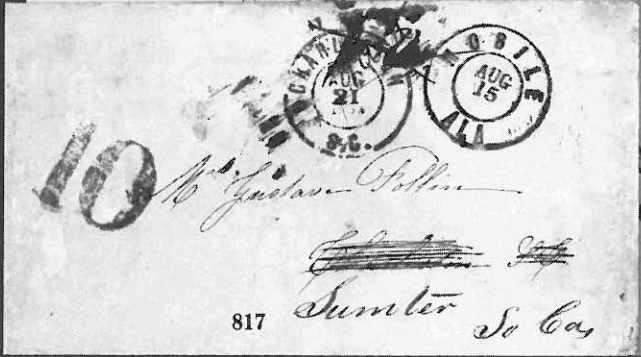 CHARL
AUG
21
S.C.
MOBILE
AUG
15
ALA
10
Mrs. Gustave Follin
Sumter
817
So Ca,